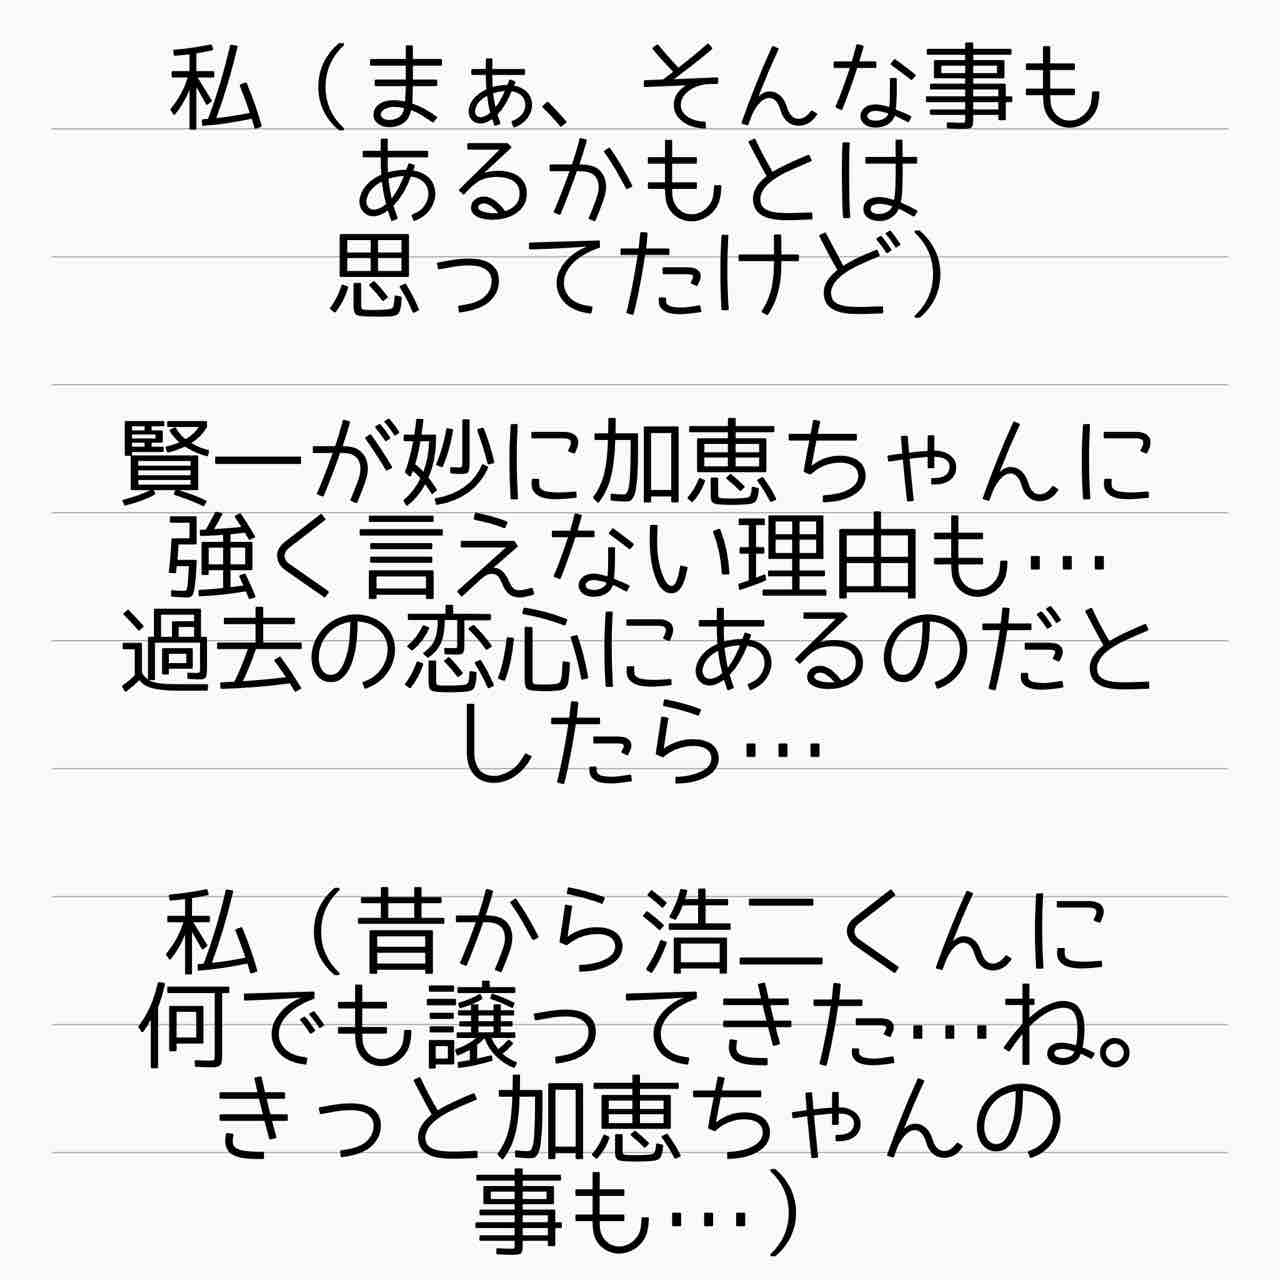 私（まぁ、そんな事も
あるかもとは
思ってたけど）
賢一が妙に加恵ちゃんに
強く言えない理由も…
過去の恋心にあるのだと
したら…
私（昔から浩二くんに
何でも譲ってきた…ね。
きっと加恵ちゃんの
事も…）